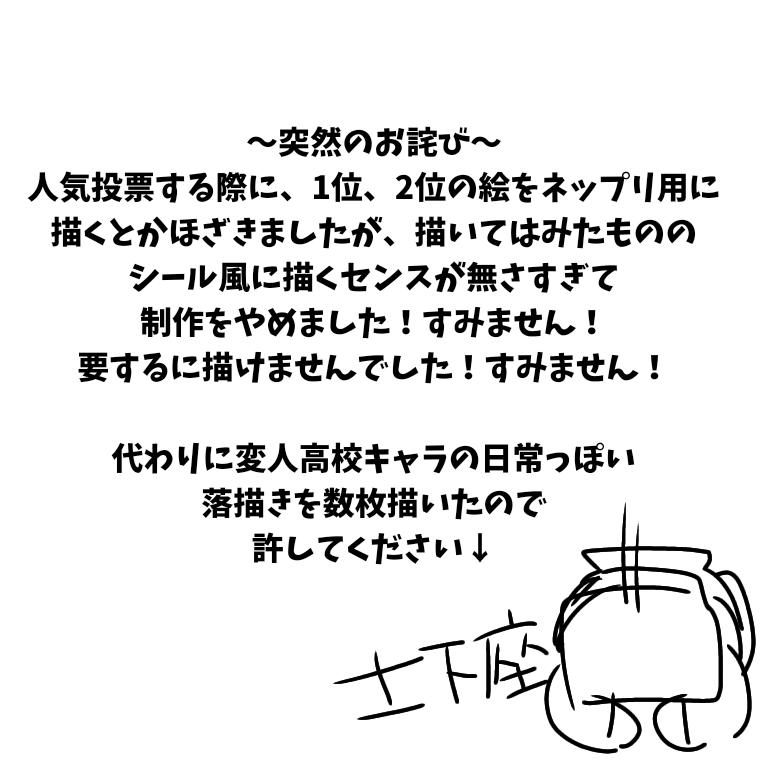 ～突然のお詫び～
人気投票する際に、1位、2位の絵をネップリ用に
描くとかほざきましたが、描いてはみたものの
シール風に描くセンスが無さすぎて
制作をやめました！すみません！
要するに描けませんでした！すみません！
代わりに変人高校キャラの日常っぽい
落描きを数枚描いたので
許してください↓
土下座